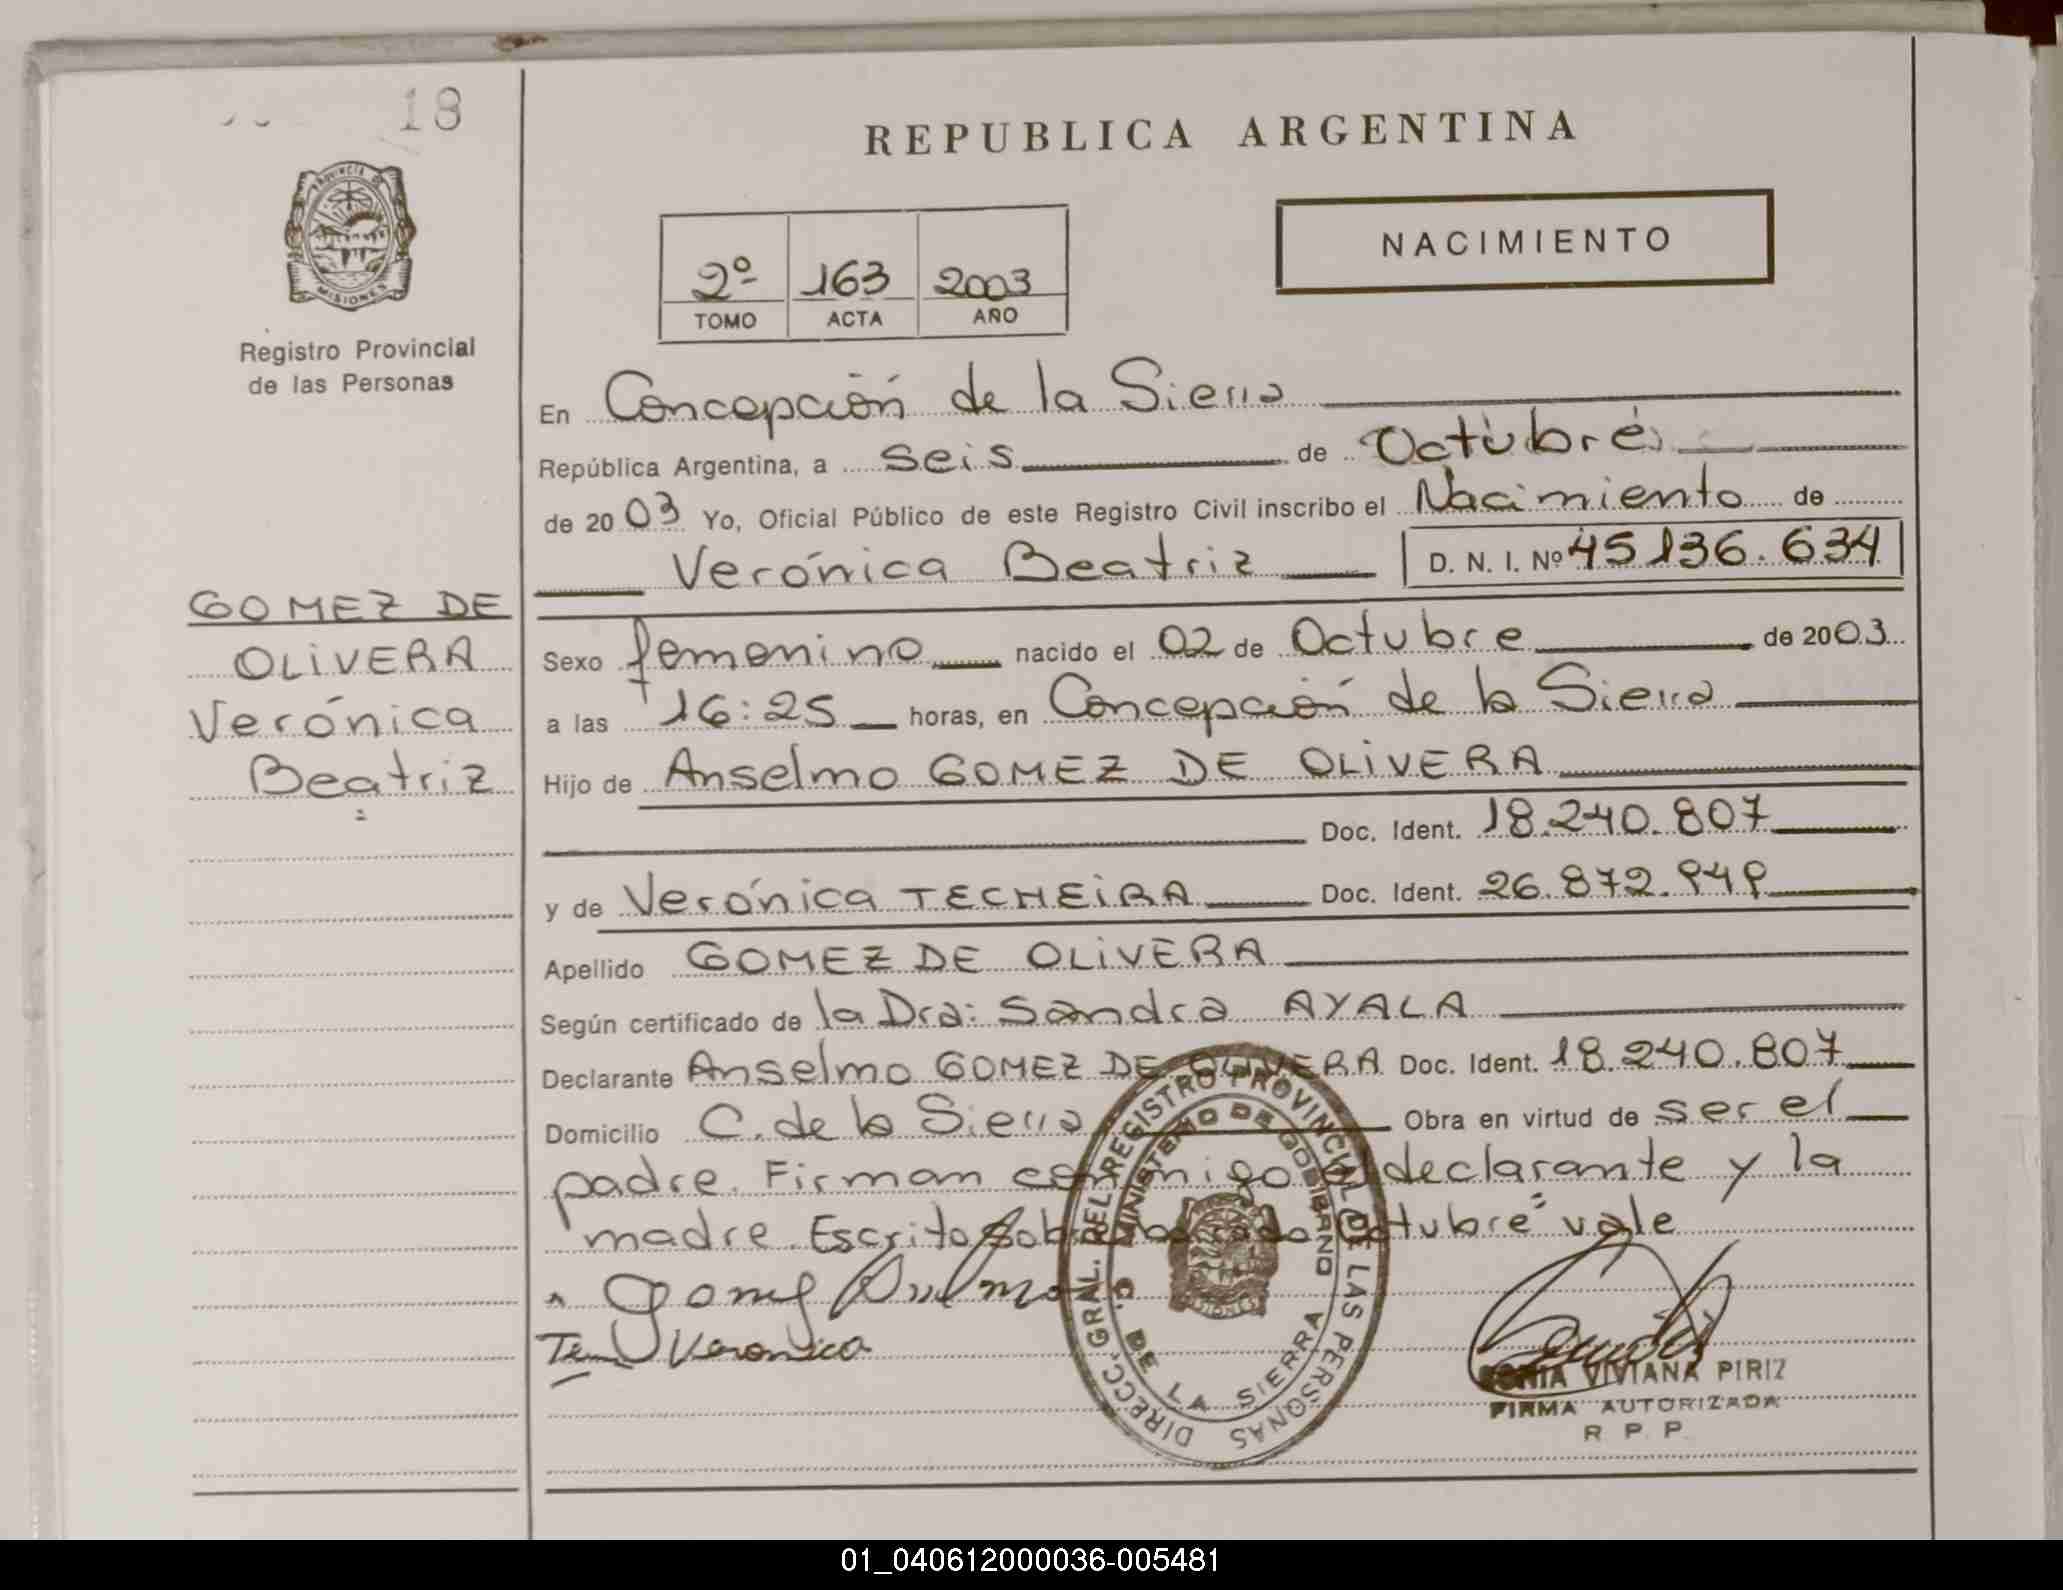 18
REPUBLICA ARGENTINA
PROVINCIA DE
MISIONES
Registro Provincial
de las Personas
2º 163 2003
TOMO ACTA AÑO
NACIMIENTO
En Concepción de la Sierra
República Argentina, a seis de Octubre
de 2003 Yo, Oficial Público de este Registro Civil inscribo el Nacimiento de
Verónica Beatriz D. N. I. Nº 45136.634
GOMEZ DE
OLIVERA
Verónica
Beatriz
Sexo femenino nacido el 02 de Octubre de 2003
a las 16:25 horas, en Concepción de la Sierra
Hijo de Anselmo GOMEZ DE OLIVERA
Doc. Ident. 18.240.807
y de Verónica TECHEIRA Doc. Ident. 26.872.949
Apellido GOMEZ DE OLIVERA
Según certificado de la Dra: Sandra AYALA
Declarante Anselmo GOMEZ DE OLIVERA Doc. Ident. 18.240.807
Domicilio C. de la Sierra Obra en virtud de ser el
padre. Firman conmigo el declarante y la
madre. Escrito sobre borrado "Octubre" vale
Veronica
DIRECC. GRAL. DEL REGISTRO PROVINCIAL DE LAS PERSONAS
MINISTERIO DE GOBIERNO
C. DE LA SIERRA
MISIONES
SONIA VIVIANA PIRIZ
FIRMA AUTORIZADA
R P P
01_040612000036-005481